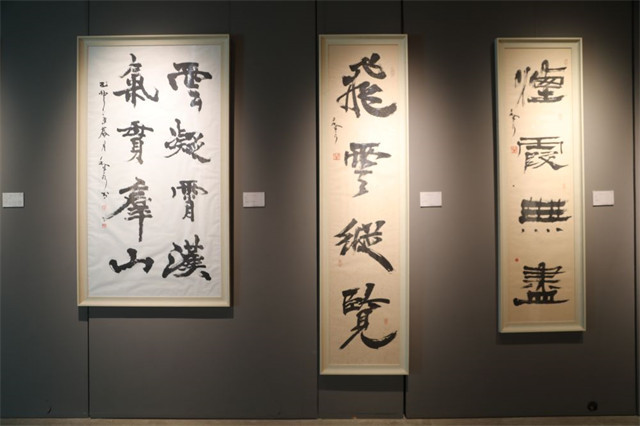 雲凝霄漢
氣貫群山
飛雲縱覽
煙霞無盡